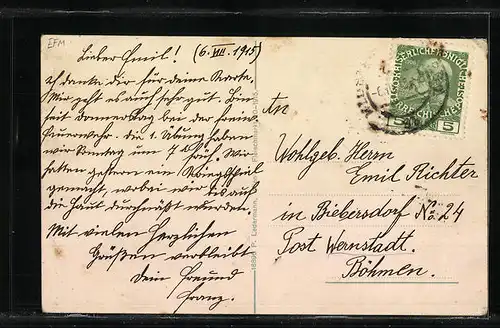 EFM
Lieber Emil! (6. VII. 1915)
ich danke dir für deine Karte.
Mir geht es auch sehr gut. Bin
seit Donnerstag bei der freiw.
Feuerwehr. die 1. Übung haben
wir Sonntag um 7h früh. Wir
hatten gestern ein
gemacht, wobei wir bis auf
die Haut durchnäßt wurden.
Mit vielen herzlichen
Grüßen verbleibt
Dein Freund
Franz.
P. Ledermann,
An
Wohlgeb. Herrn
Emil Richter
in Biebersdorf No. 24
Post Wernstadt.
Böhmen.
5 5